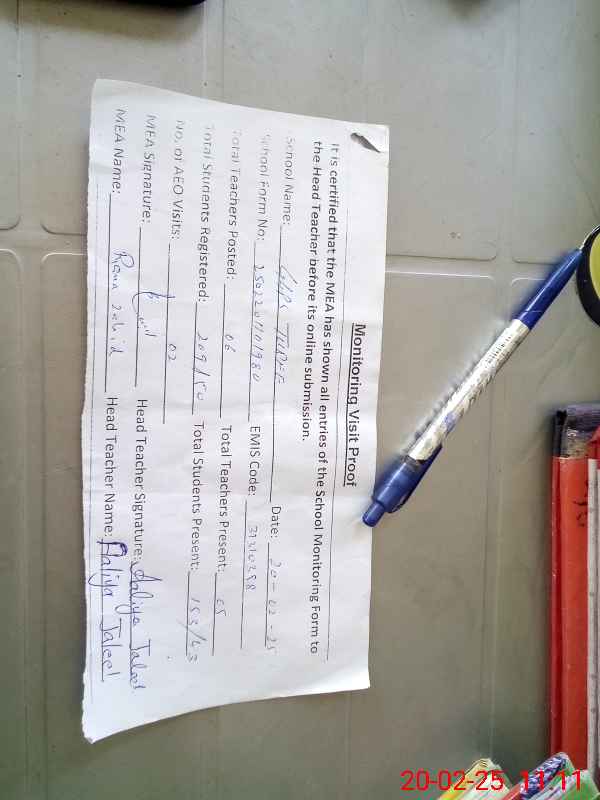 Monitoring Visit Proof
It is certified that the MEA has shown all entries of the School Monitoring Form to
the Head Teacher before its online submission.
School Name: Date: 20-02-25
School Form No: EMIS Code:
Total Teachers Posted: 06 Total Teachers Present: 05
Total Students Registered: 209/50 Total Students Present: 153/43
No. of AEO Visits: 02
MEA Signature: Head Teacher Signature: Aaliya Jaleel
MEA Name: Rana Zahid Head Teacher Name: Aaliya Jaleel
20-02-25 11:11